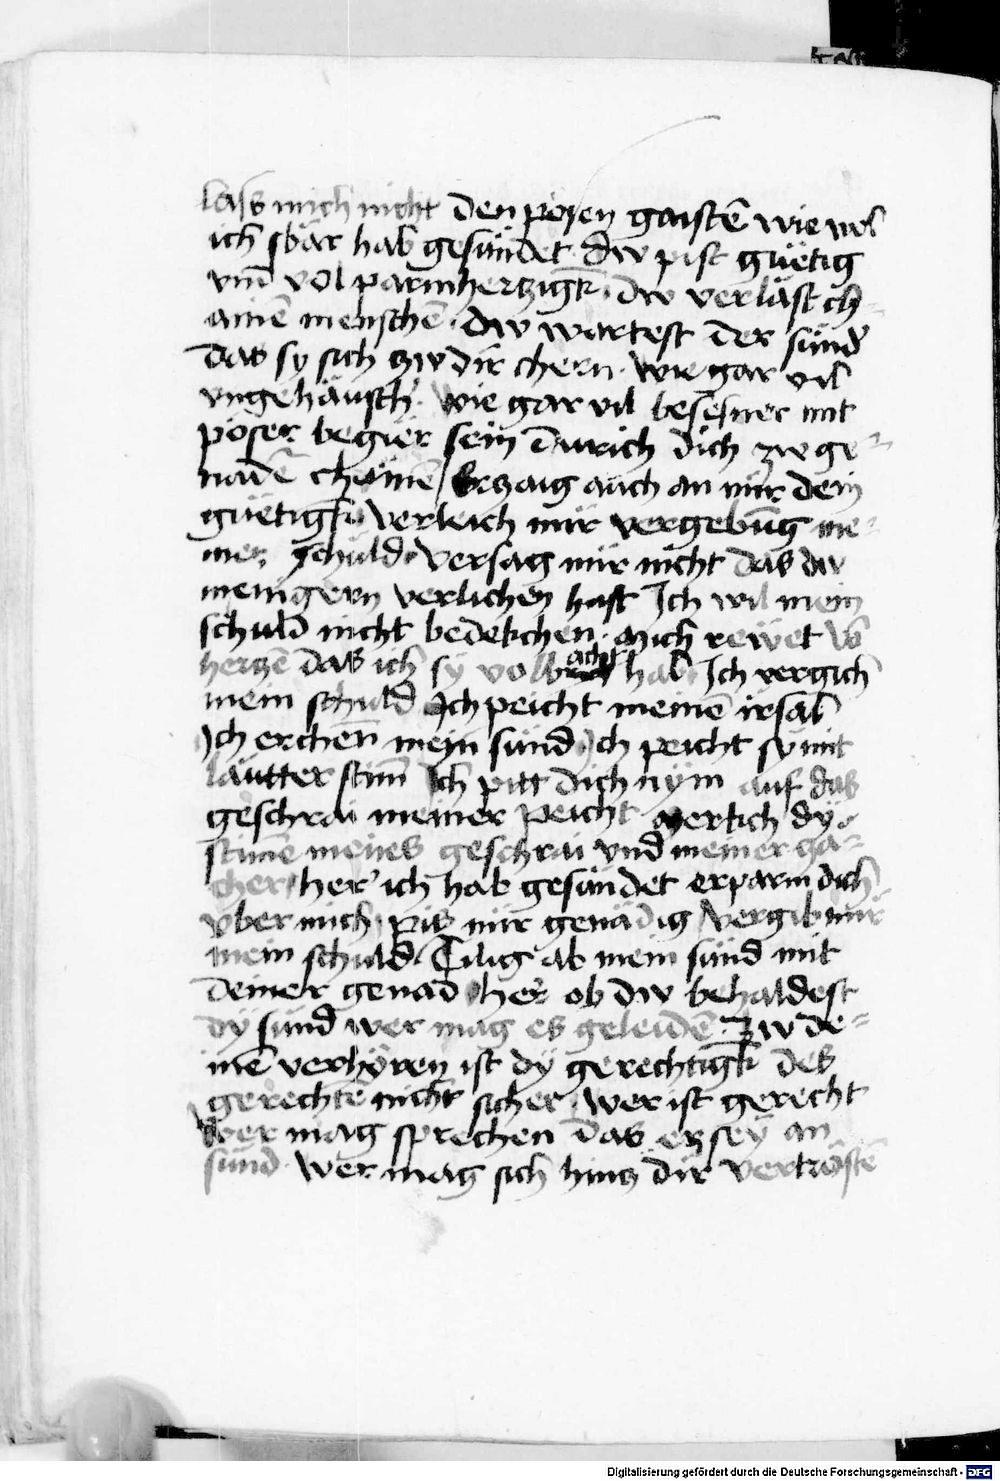 lass mich nicht den pösen gaistē wie wol
ich swär hab gesündet dw pist güetig
vnd vol parmhertzigk̄ · dw verläst ch-
ainē menschē · dw wartest der sünd
das sy sich zw dir chern · wie gar vil
vngehäusch · wie gar vil besesner mit
pöser begier sein durich dich zw ge=
nadē chömē / Erzaig auch an mir dein
güetigk̄ · verleich mir vergebūg me=
iner schuld · versag mir nicht das dw
menigern verlichen hast Ich wil mein
schuld nicht bedekchen · Mich rewet vō
hertzē das ich sy volbracht hab Ich vergich
mein schuld Ich peicht meinē irsal
Ich erchen̄ mein sünd Ich peicht sy mit
lautter stim̄ Ich pitt dich nym auf das
geschrai meiner peicht Merkch dy
stimē meines geschrai vnd meiner
her ich hab gesündet erparm dich
vber mich pis mir genädig Vergib mir
mein schuld · Tilig ab mein sünd mit
deiner genad her ob dw behaldest
dy sünd wer mag es geleidē · Zw de=
inē verhören ist dy gerechtigk̄ des
gerechtē nicht sicher · wer ist gerecht
wer mag sprechen das er sey an
sünd · wer mag sich hinz dir vertröstē
Digitalisierung gefördert durch die Deutsche Forschungsgemeinschaft - DFG